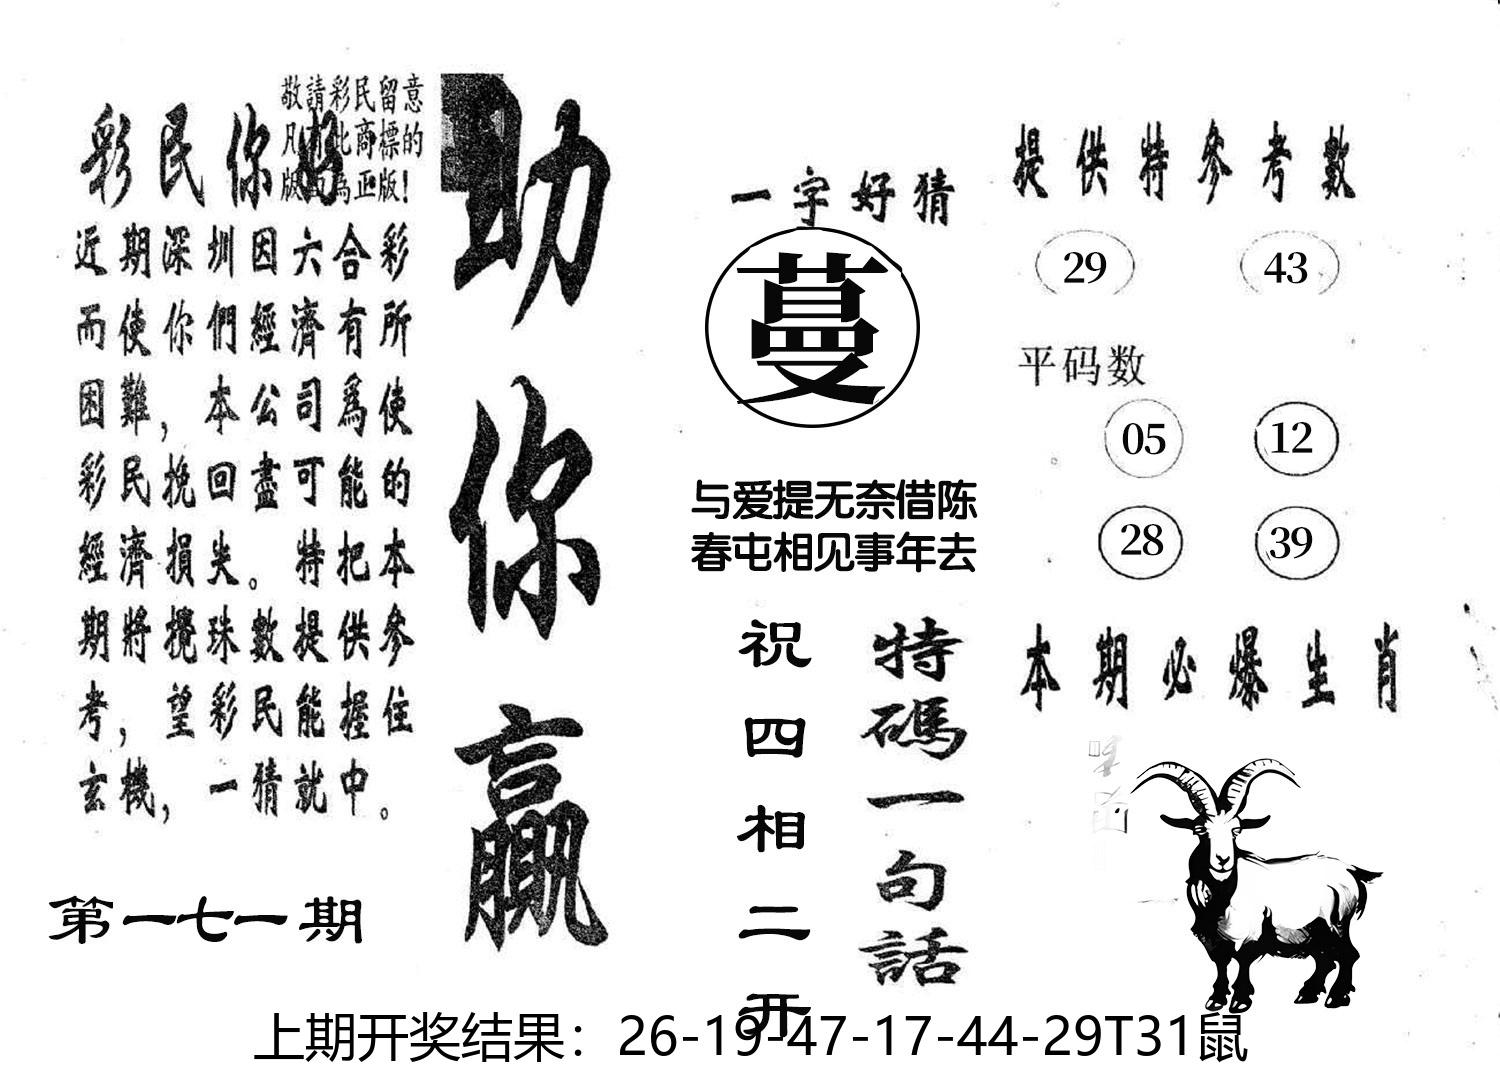 敬請彩民留意
凡有此商標的
版面為正版！
彩民你好
近期深圳因六合彩
而使你們經濟有所
困難，本公司爲使
彩民挽回盡可能的
經濟損失。特把本
期將攪珠數提供參
考，望彩民能握住
玄機，一猜就中。
第一七一期
助你贏
一字好猜
蔓
与爱提无奈借陈
春屯相见事年去
祝四相二开
特碼一句話
提供特參考數
29 43
平码数
05 12
28 39
本期必爆生肖
上期开奖结果：26-19-47-17-44-29T31鼠